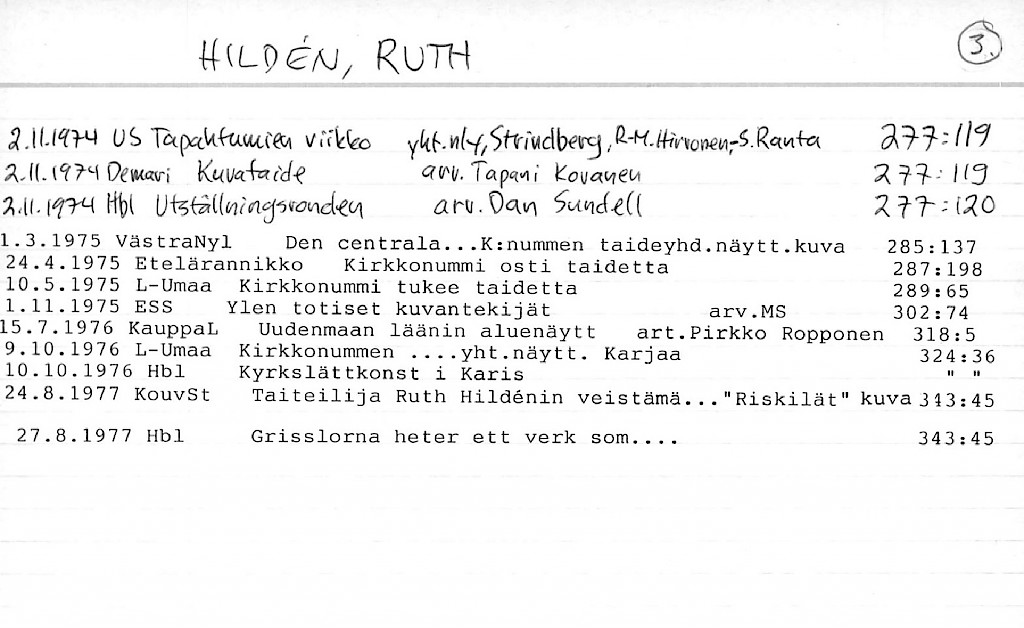 HILDÉN, RUTH 3.
2.11.1974 US Tapahtumien viikko yht.nly, Strindberg, R-M.Hirvonen, S.Ranta 277:119
2.11.1974 Demari Kuvataide arv. Tapani Kovanen 277:119
2.11.1974 Hbl Utställningsronden arv. Dan Sundell 277:120
1.3.1975 VästraNyl Den centrala...K:nummen taideyhd.näytt.kuva 285:137
24.4.1975 Etelärannikko Kirkkonummi osti taidetta 287:198
10.5.1975 L-Umaa Kirkkonummi tukee taidetta 289:65
1.11.1975 ESS Ylen totiset kuvantekijät arv.MS 302:74
15.7.1976 KauppaL Uudenmaan läänin aluenäytt art.Pirkko Ropponen 318:5
9.10.1976 L-Umaa Kirkkonummen ....yht.näytt. Karjaa 324:36
10.10.1976 Hbl Kyrkslättkonst i Karis " "
24.8.1977 KouvSt Taiteilija Ruth Hildénin veistämä..."Riskilät" kuva 343:45
27.8.1977 Hbl Grisslorna heter ett verk som.... 343:45